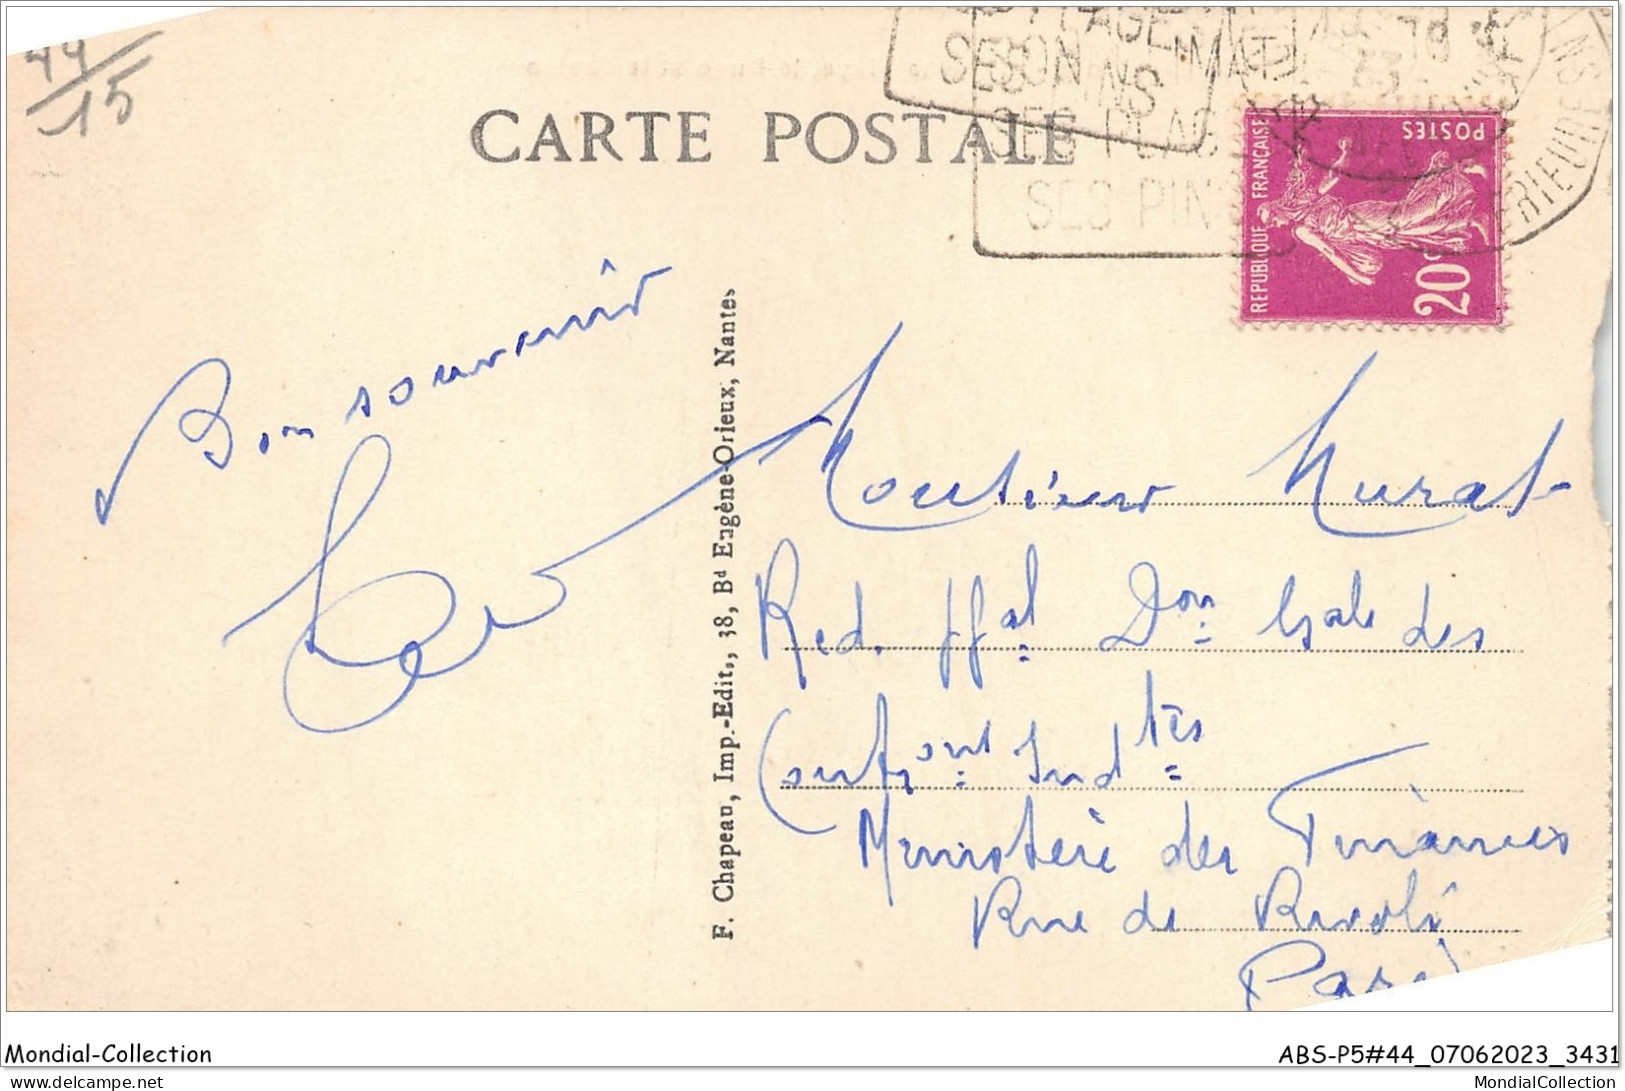 44
15
CARTE POSTALE
SES PLAG
SES PINS
RIEURE
REPUBLIQUE FRANCAISE
POSTES
20c
Bon souvenir
F. Chapeau, Imp.-Edit., 38, Bd Eugène-Orieux, Nantes
Monsieur Murat
Red. ppal Don Gale des
Controns Indtes
Ministère des Finances
Rue de Rivoli
Paris
Mondial-Collection
ABS-P5#44_07062023_3431
www.delcampe.net
MondialCollection